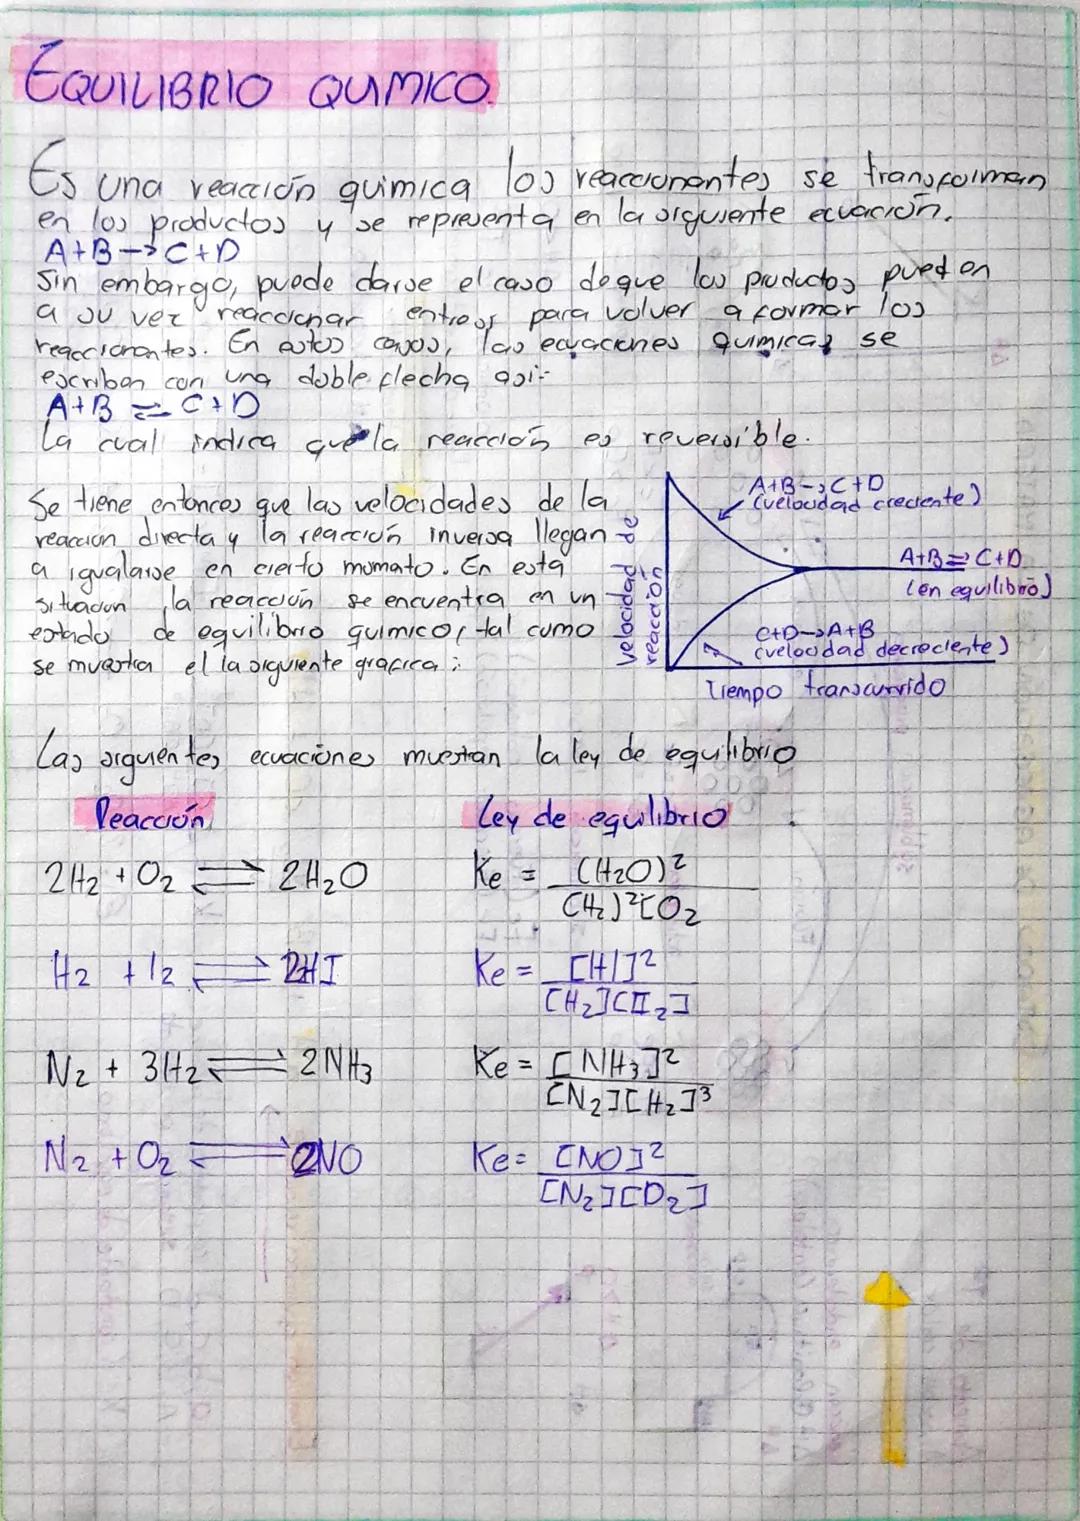 EQUILIBRIO QUIMICO.
Es una reacción quimica los reaccionantes se transforman
en los productos y se representa en la siguiente ecuación.
A+B->C+D
Sin embargo, puede darse el caso de que los productos pueden
a su vez reaccionar entre si para volver a formar los
reaccionantes. En estos casos, las ecuaciones quimicas se
escriben con una doble flecha asi:
A+B ⇌ C+D
La cual indica que la reacción es reversible.
Se tiene entonces que las velocidades de la
reaccion directa y la reacción inversa llegan
a igualarse en cierto momato. En esta
situacion, la reacción se encuentra en un
estado de equilibrio quimico, tal como
se muestra el la siguiente grafica:
velocidad de
reacción
A+B->C+D
(velocidad creciente)
A+B⇌C+D
(en equilibrio)
C+D->A+B
(velocidad decreciente)
Tiempo transcurrido
Las siguientes ecuaciones muestan la ley de equilibrio
Reacción Ley de equilibrio
2H₂ + O₂ ⇌ 2H₂O Ke = (H₂O)²
(H₂)²[O₂
H₂ + I₂ ⇌ 2HI Ke = [HI]²
[H₂][I₂]
N₂ + 3H₂ ⇌ 2NH₃ Ke = [NH₃]²
[N₂][H₂]³
N₂ + O₂ ⇌ 2NO Ke = [NO]²
[N₂][O₂]